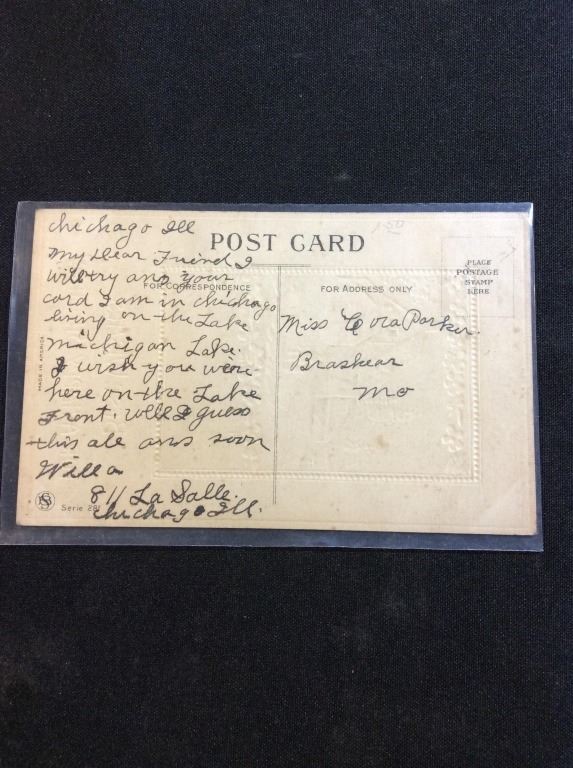 Chichago Ill
1.50
POST CARD
PLACE
POSTAGE
STAMP
HERE
FOR CORRESPONDENCE
FOR ADDRESS ONLY
My Dear Friend I
will try ans your
card I am in Chichago
living on the Lake
Michigan Lake.
I wish you were
here on the Lake
Front. Will I guess
this all ans soon
Willa
811 La Salle.
Chichago Ill.
Miss Cora Parker.
Brashear
Mo
MADE IN AMERICA
Serie 281